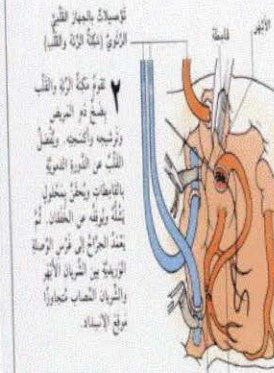 توصيلات بالجهاز القلبي
الرئوي (مكنة الرئة والقلب)
قامطة
الأبهر
٢ تقوم مكنة الرئة والقلب
بضخ دم المريض
وترشيحه وأكسجته. ويُفصل
القلب عن الدورة الدموية
بالقامطات ويُحقن بمحلول
يشله ويوقفه عن الخفقان. ثم
يعمد الجراح إلى غرس الوصلة
الوريدية بين الشريان الأبهر
والشريان المصاب متجاوزًا
موقع الانسداد.